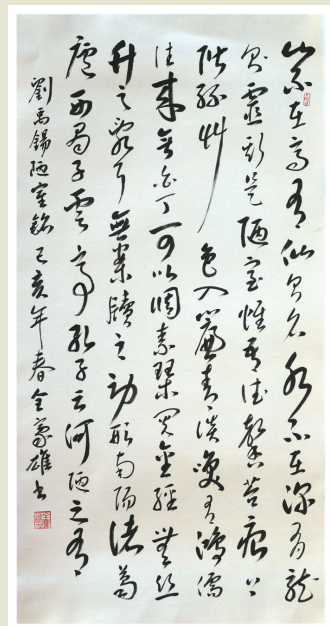 山不在高有仙則名水不在深有龍
則靈斯是陋室惟吾德馨苔痕上
階綠草色入簾青談笑有鴻儒
往來無白丁可以調素琴閱金經無絲
竹之亂耳無案牘之勞形南陽諸葛
廬西蜀子雲亭孔子云何陋之有
劉禹錫陋室銘己亥年春全蒙雄書